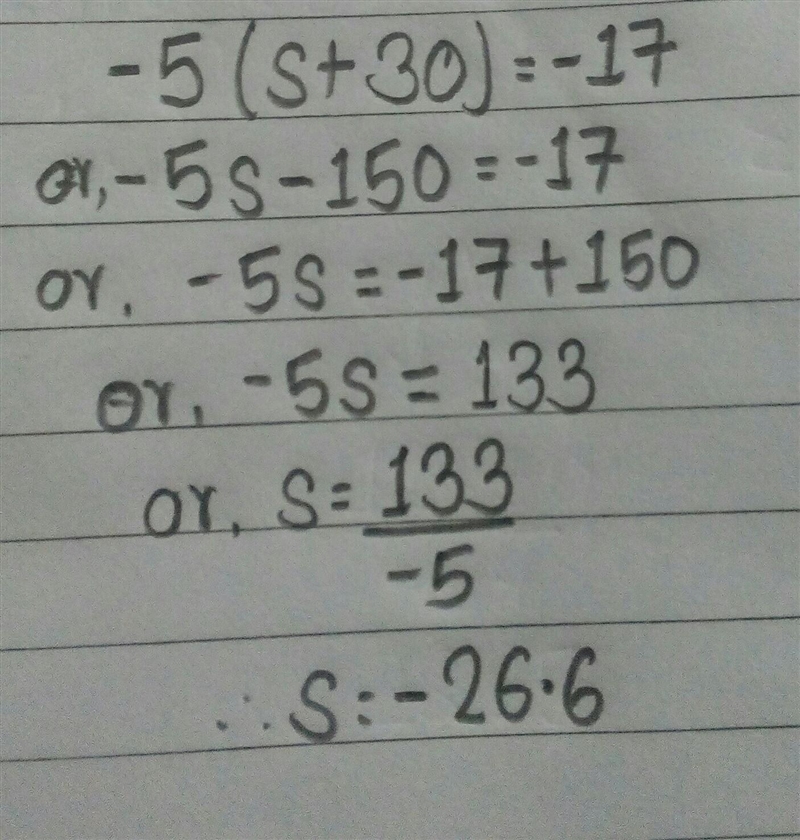 -5(s+30)=-17
or,-5s-150=-17
or, -5s=-17+150
or, -5s=133
or, s=133/-5
∴s=-26·6